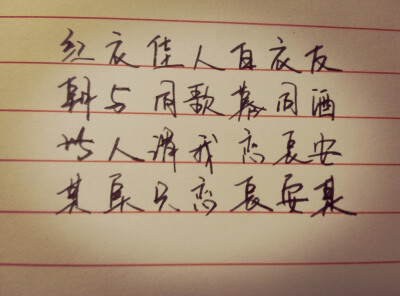 红衣佳人白衣友
朝与同歌暮同酒
世人谓我恋长安
其实只恋长安某